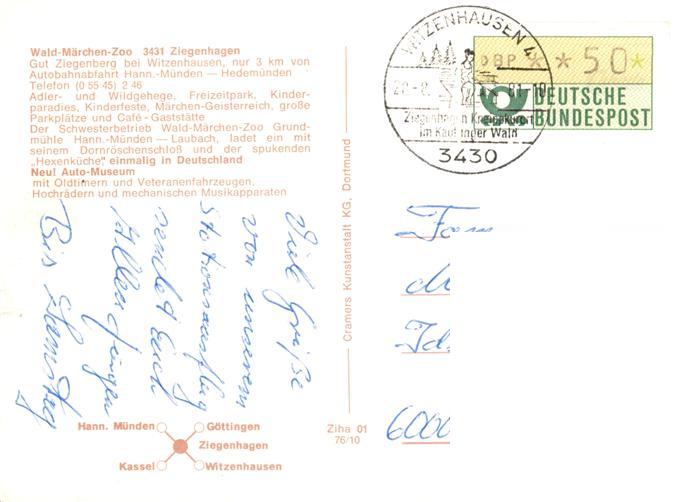 Wald-Märchen-Zoo 3431 Ziegenhagen
Gut Ziegenberg bei Witzenhausen, nur 3 km von
Autobahnabfahrt Hann.-Münden — Hedemünden
Telefon (0 55 45) 2 46
Adler- und Wildgehege, Freizeitpark, Kinder-
paradies, Kinderfeste, Märchen-Geisterreich, große
Parkplätze und Café - Gaststätte
Der Schwesterbetrieb Wald-Märchen-Zoo Grund-
mühle Hann.-Münden — Laubach, ladet ein mit
seinem Dornröschenschloß und der spukenden
„Hexenküche" einmalig in Deutschland
Neu! Auto-Museum
mit Oldtimern und Veteranenfahrzeugen,
Hochrädern und mechanischen Musikapparaten
Viele Grüße
von unserem
Stationsausflug
sendet Euch
Allen
Bis Samstag
Hann. Münden
Göttingen
Ziegenhagen
Kassel
Witzenhausen
Cramers Kunstanstalt KG, Dortmund
Ziha 01
76/10
WITZENHAUSEN 4
Ziegenhagen Kneippkurort
im Kaufunger Wald
3430
DBP * * 50 *
DEUTSCHE
BUNDESPOST
6000